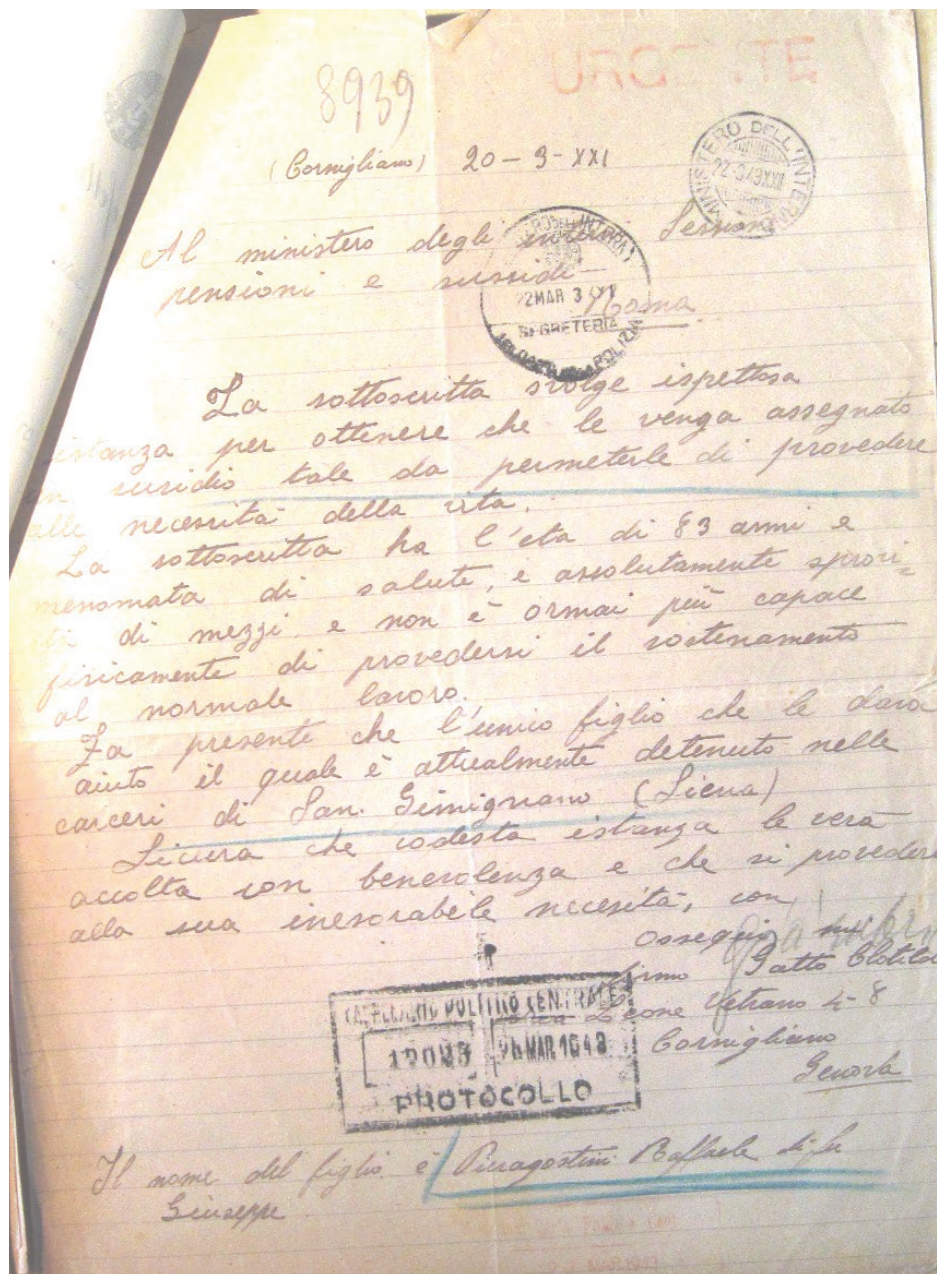 8939
URGENTE
(Cornigliano) 20-3-XXI
MINISTERO DELL'INTERNO
22-3-43 XXI
Al ministero degli interni Sessioni
pensioni e sussidi
Roma
22 MAR 3 XXI
SEGRETERIA
POLIZIA
La sottoscritta svolge ispettosa
istanza per ottenere che le venga assegnato
un sussidio tale da permeterle di provedere
alle necessità della vita.
La sottoscritta ha l'età di 83 anni e
menomata di salute, e assolutamente sprovi=
ta di mezzi e non è ormai più capace
fisicamente di provedersi il sostenamento
al normale lavoro.
Fa presente che l'unico figlio che le dava
aiuto il quale è attualmente detenuto nelle
carceri di San. Gimignano (Siena)
Sicura che codesta istanza le verà
accolta con benevolenza e che si provedere
alla sua inesorabile necesità, con
ossequi mi
firmo Gatto Clotilde
Leone Vetrano 4-8
Cornigliano
Genova
CASELLARIO POLITICO CENTRALE
26 MAR 1943
PROTOCOLLO
Il nome del figlio è Pieragostini Raffaele di fu
Giuseppe